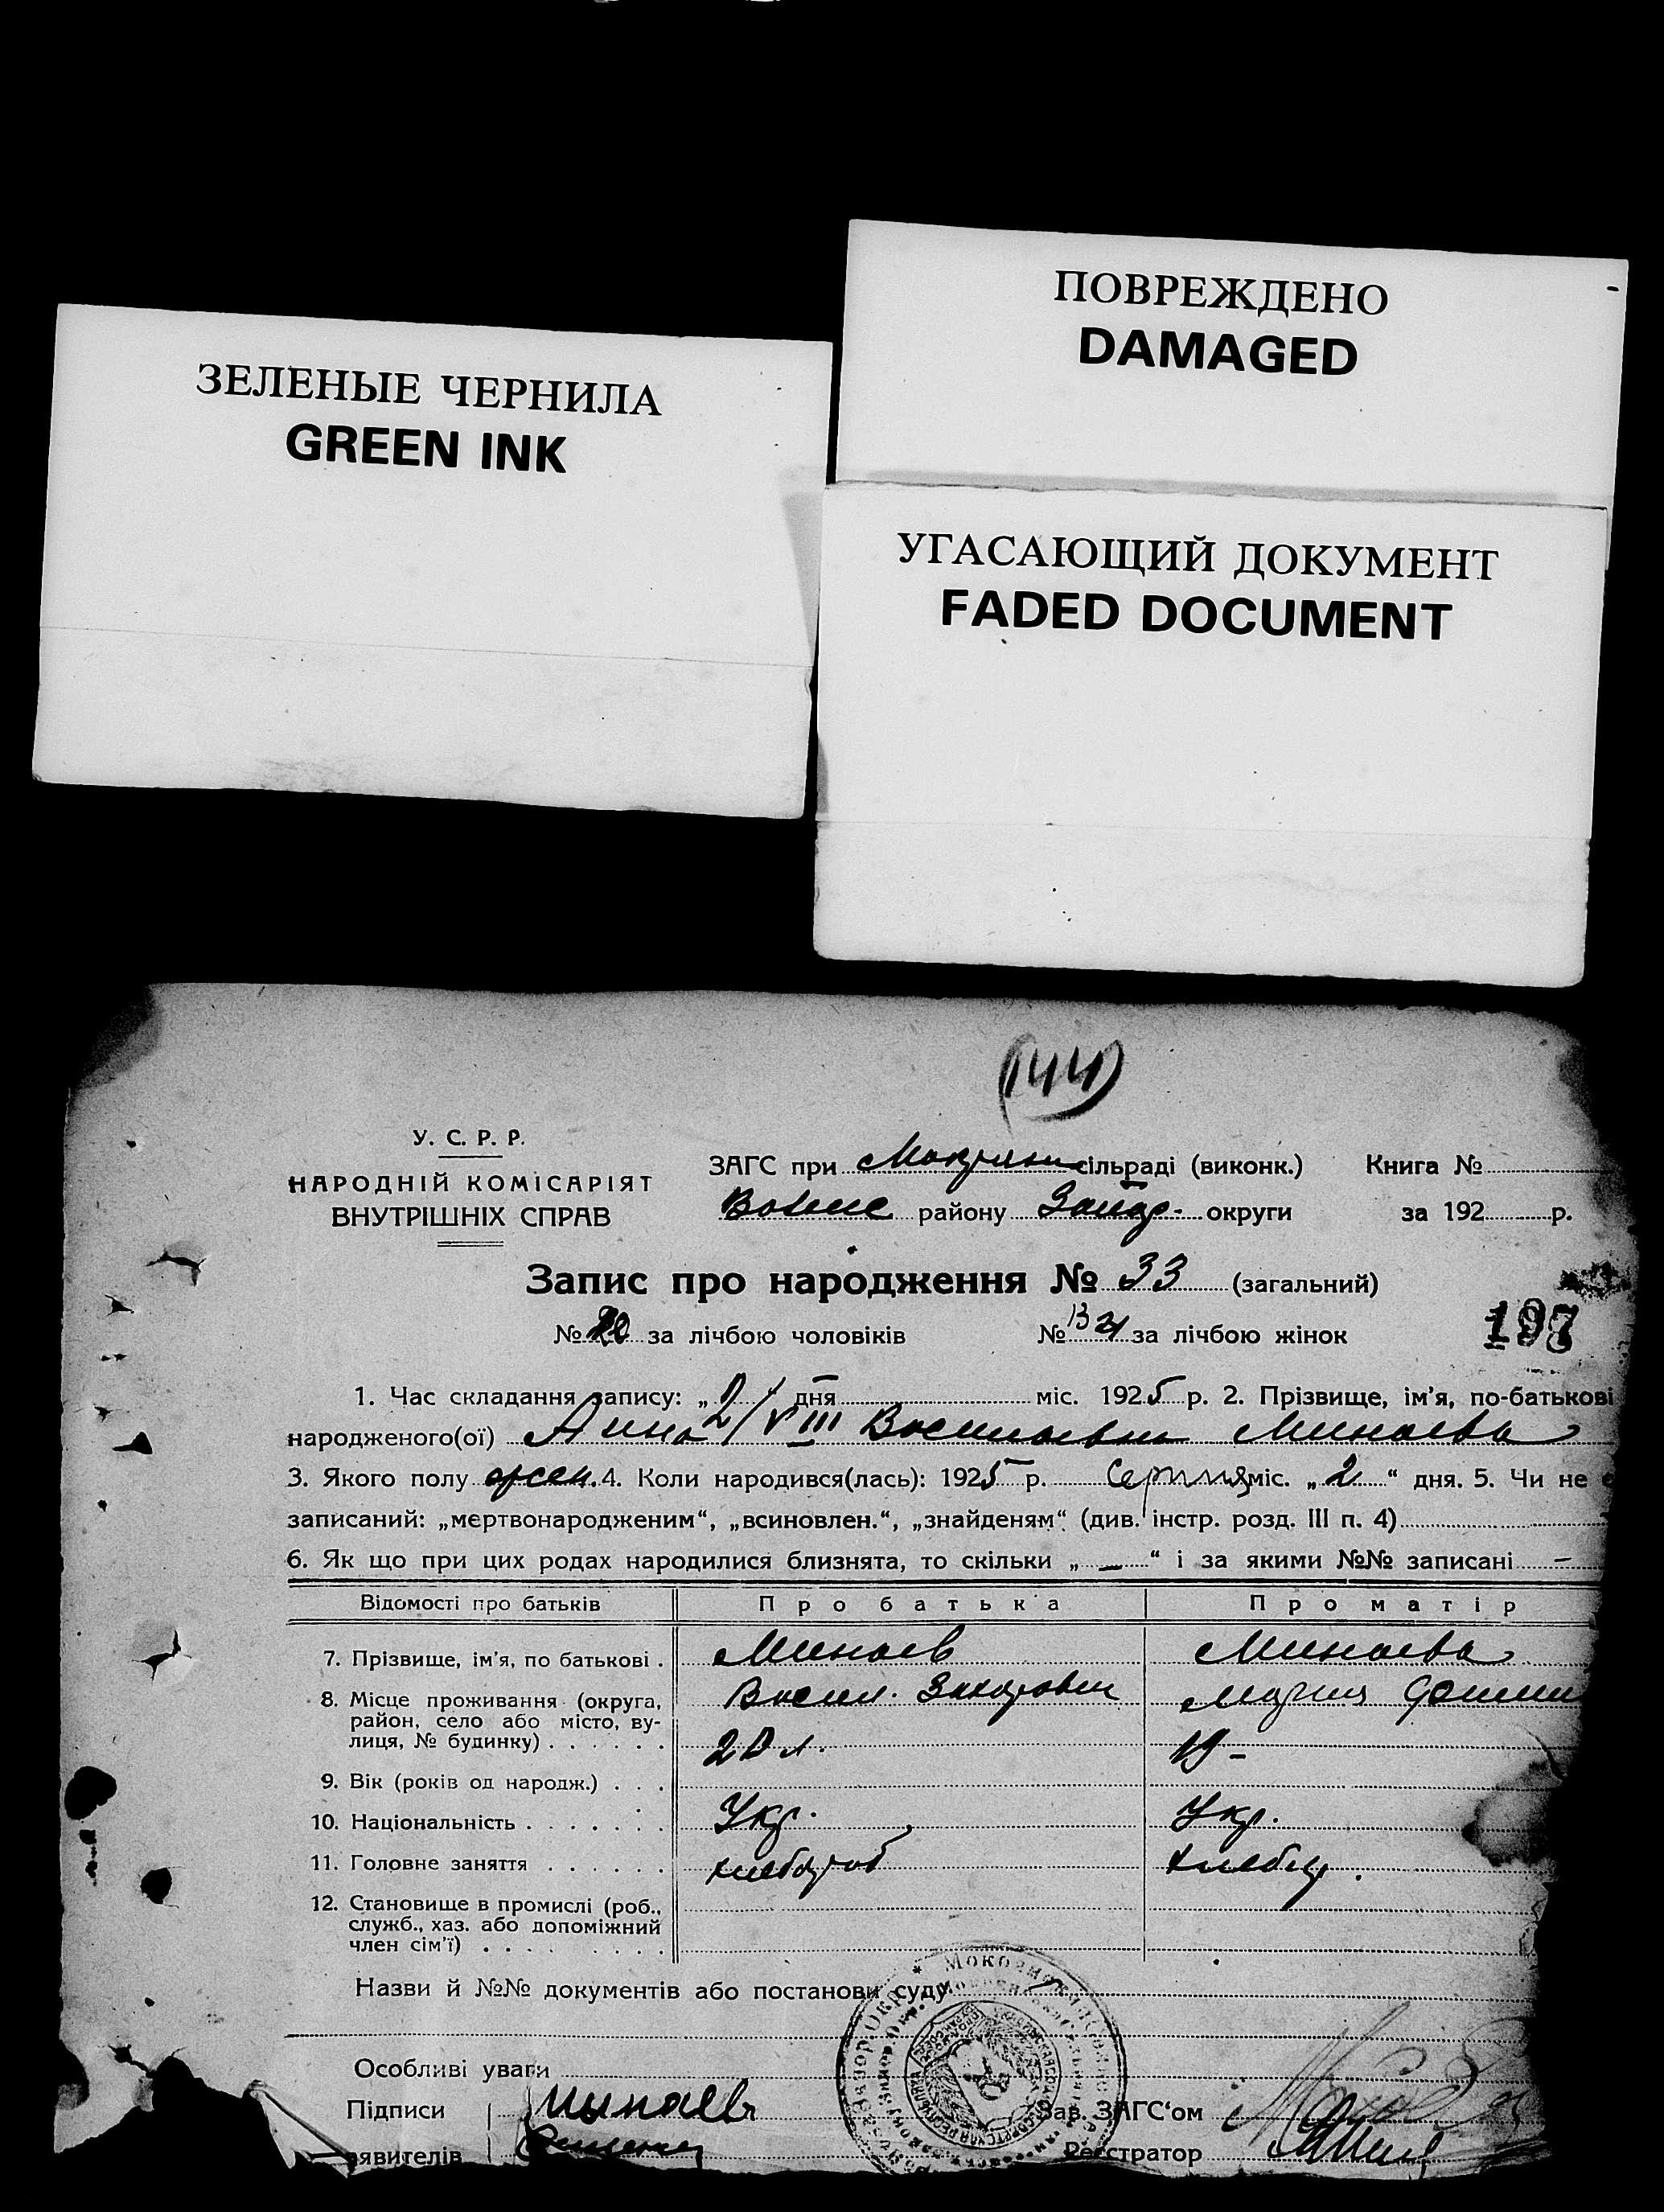 ПОВРЕЖДЕНО
DAMAGED
ЗЕЛЕНЫЕ ЧЕРНИЛА
GREEN INK
УГАСАЮЩИЙ ДОКУМЕНТ
FADED DOCUMENT
(144)
У. С. Р. Р.
НАРОДНІЙ КОМІСАРІЯТ
ВНУТРІШНІХ СПРАВ
ЗАГС при сільраді (виконк.) Книга №
району Запор. округи за 192 р.
Запис про народження № 33 (загальний)
№ за лічбою чоловіків № за лічбою жінок
197
1. Час складання запису: „2/VIII“ дня міс. 1925 р. 2. Прізвище, ім'я, по-батькові
народженого(ої) Анна Васильевна Минаева
3. Якого полу жен. 4. Коли народився(лась): 1925 р. Серпня міс. „2“ дня. 5. Чи не
записаний: „мертвонародженим“, „всиновлен.“, „знайденям“ (див. інстр. розд. III п. 4)
6. Як що при цих родах народилися близнята, то скільки „—“ і за якими №№ записані —
Відомості про батьків Про батька Про матір
7. Прізвище, ім'я, по батькові . Минаев Минаева
8. Місце проживання (округа, Васил. Захарович Мария
район, село або місто, ву-
лиця, № будинку) . . . . . . 20 л. 19 –
9. Вік (років од народж.) . . .
10. Національність . . . . . . . Укр. Укр.
11. Головне заняття . . . . . . хлебороб хлебор.
12. Становище в промислі (роб.,
служб., хаз. або допоміжний
член сім'ї) . . . . . . . .
Назви й №№ документів або постанови суду
Особливі уваги
Підписи Минаев Зав. ЗАГС‘ом
явителів Реєстратор